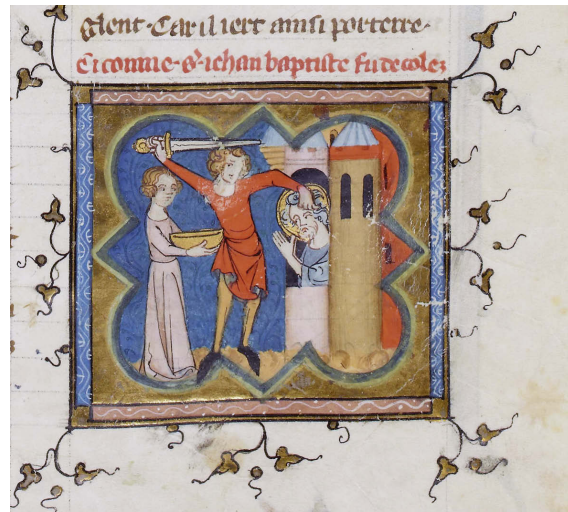 glent· Car il iert ainsi porterre·
Ci conme· s· iehan baptiste fu decolez